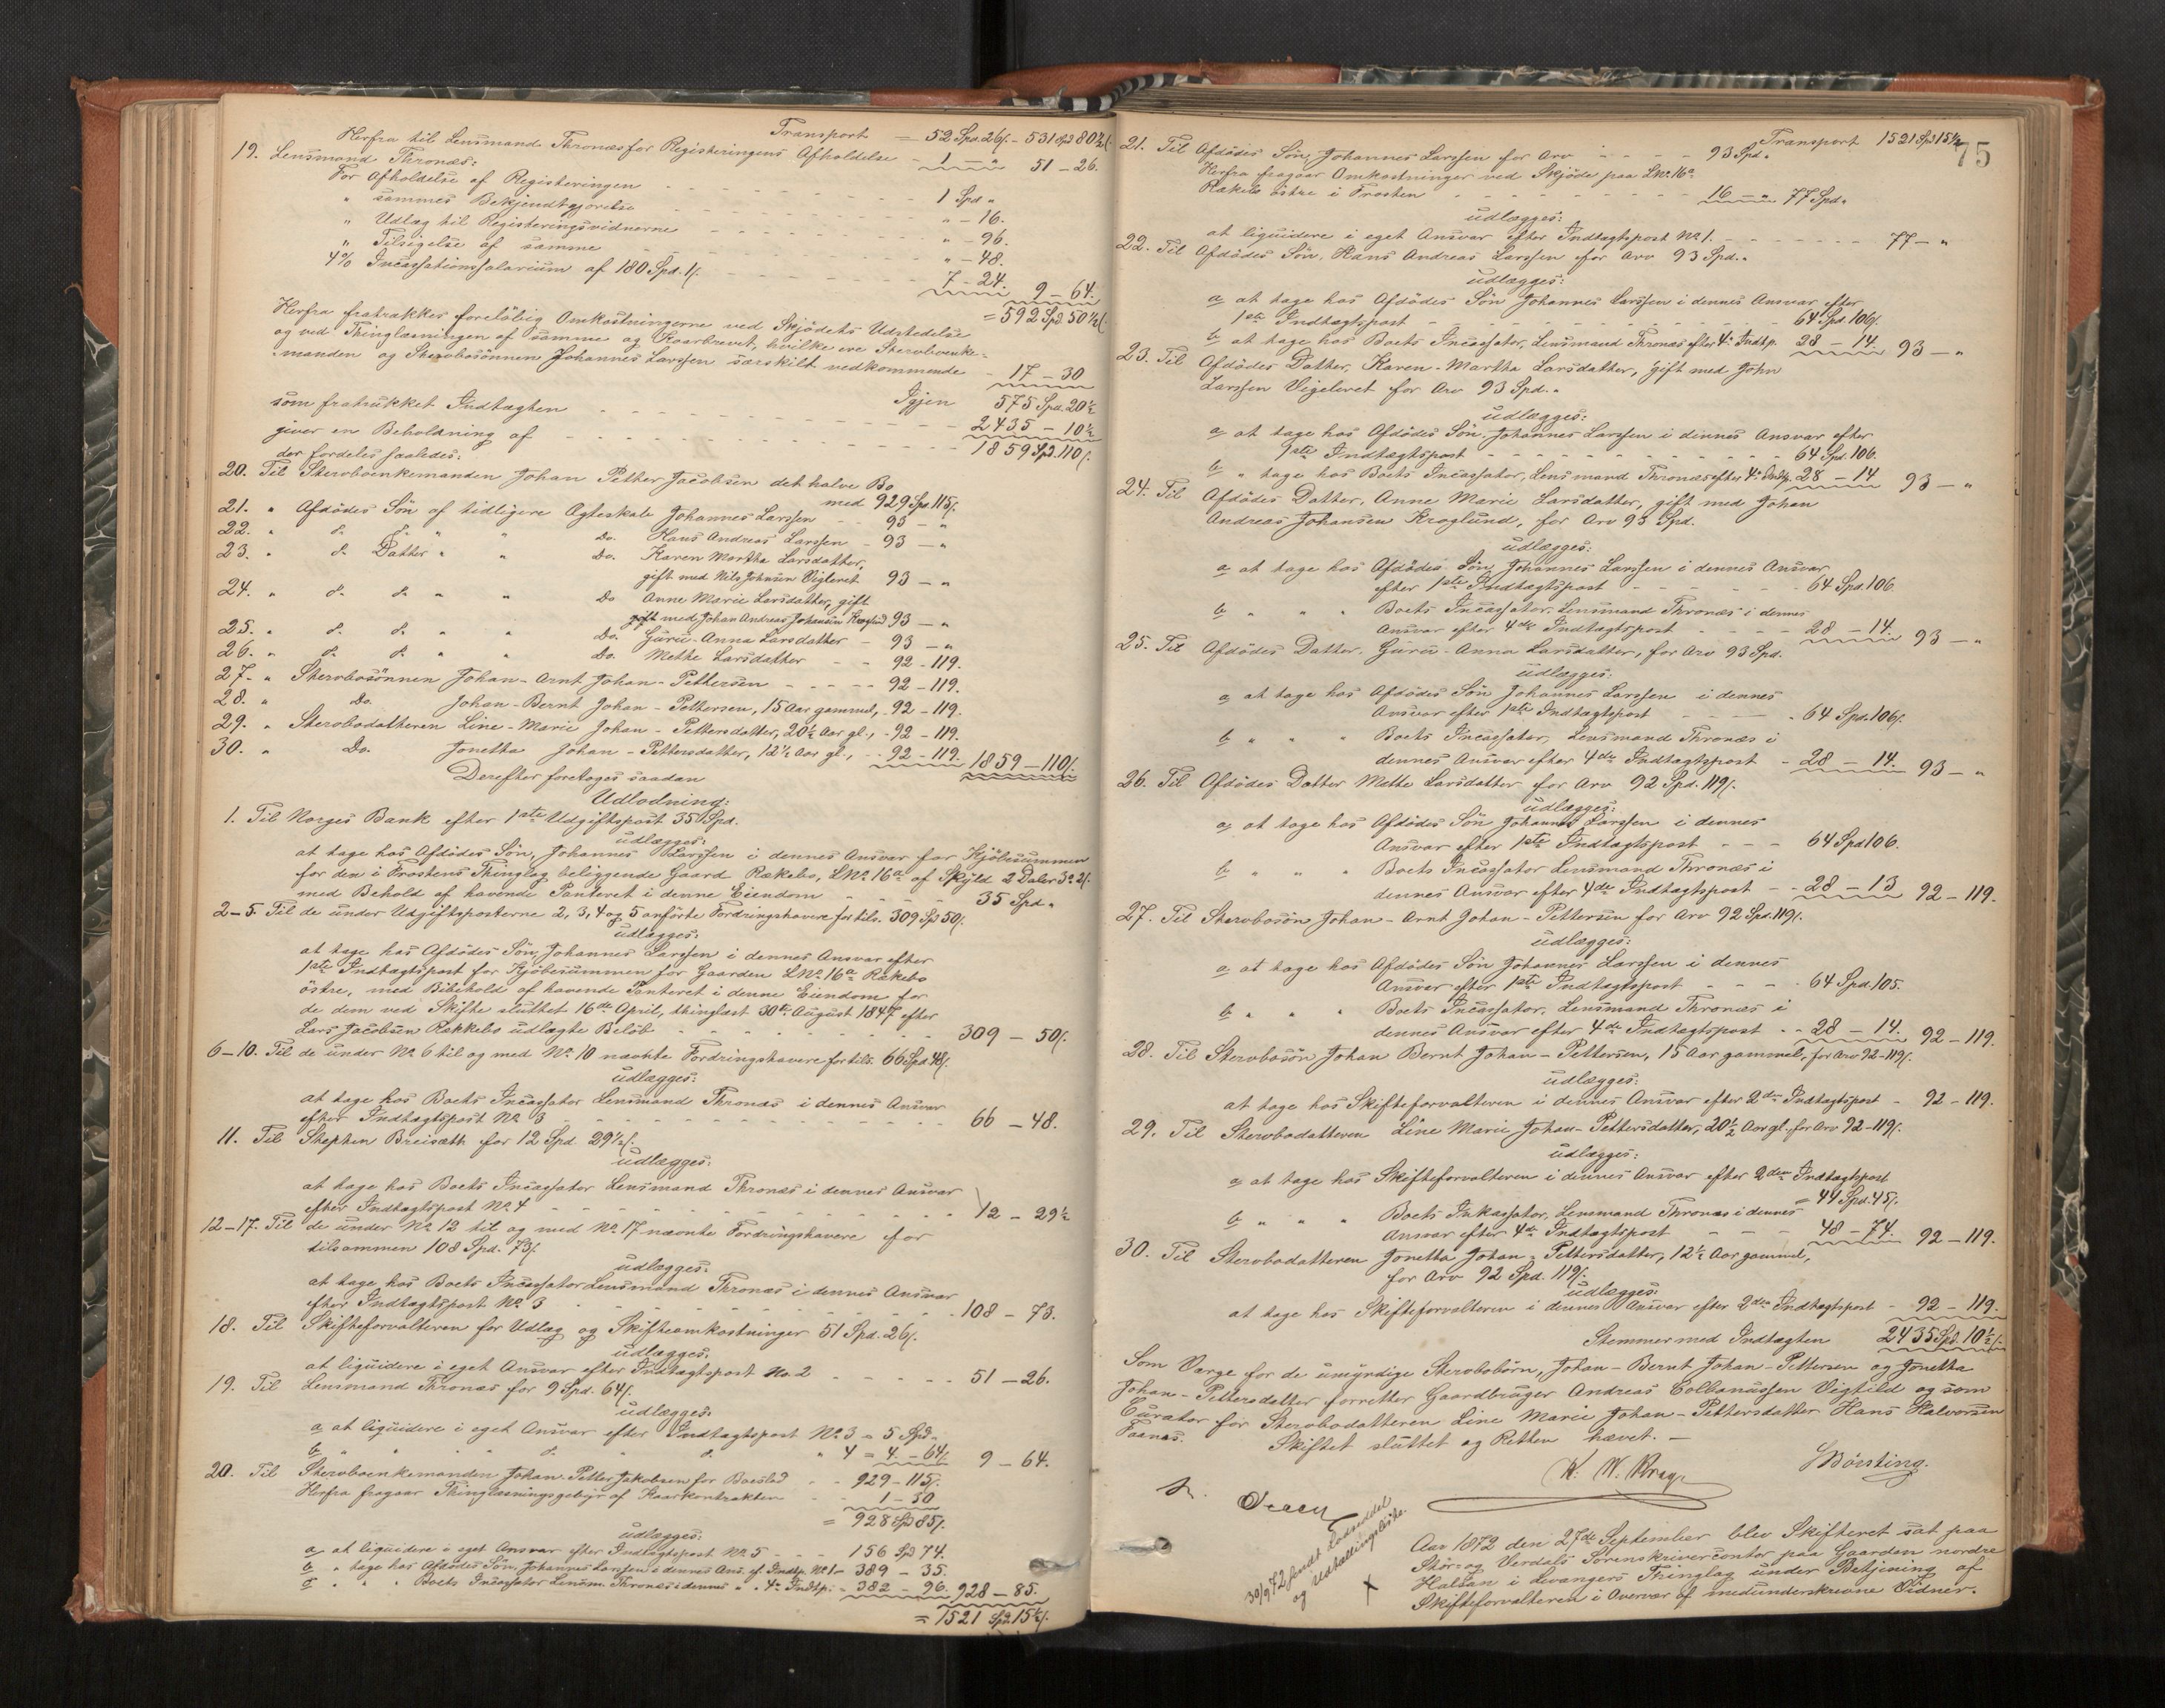 Transport = 52 Spd. 26 /. - 531 Spd 80½ /.
Herfra til Lensmand Thronæs for Registeringens Afholdelse - 1 - " 51 - 26.
19. Lensmand Thronæs:
For Afholdelse af Registeringen - - - 1 Spd "
" sammes Bekjendtgjørelse - - - " - 16.
" Udlæg til Registeringsvidnerne - - - " - 96.
" Tilsigelse af samme - - - " - 48.
4% Incassationssalarium af 180 Spd. 1 /. - - - 7 - 24. 9 - 64.
= 592 Spd. 50½ /.
Herfra fratrækkes foreløbig Omkostningerne ved Skjødets Udstedelse
og ved Thinglæsningen af samme og Kaarbrevet, hvilke ere Stervboenke-
manden og Stervbosønnen Johannes Larssen særskilt vedkommende - 17 - 30
Igjen 575 Spd. 20½
som fratrukket Indtægten - - - 2435 - 10½
giver en Beholdning af - - - 1859 Spd. 110 /.
der fordeles saaledes:
20. Til Stervboenkemanden Johan Petter Jacobsen det halve Bo
med 929 Spd 115 /.
21. " Afdødes Søn af tidligere Ægteskab Johannes Larssen - 93 - "
22. " d. d. " " Do. Hans Andreas Larssen - 93 - "
23. " d. Datter " " Do. Karen Martha Larsdatter,
gift med Nils Johnsen Vigleret 93 - "
24. " d. d. " " Do Anne Marie Larsdatter, gift
gift med Johan Andreas Johansen Kroglund 93 - "
25. " d. d. " " Do. Guru-Anna Larsdatter - 93 - "
26. " d. d. " " Do. Methe Larsdatter - - 92 - 119.
27. " Stervbosønnen Johan-Arnt Johan-Pettersen - - - 92 - 119.
28. " Do. Johan-Bernt Johan-Pettersen, 15 Aar gammel, - 92 - 119.
29. " Stervbodatteren Line-Marie Johan-Pettersdatter, 20½ Aar gl., - 92 - 119.
30. " Do. Jonetha Johan-Pettersdatter, 12½ Aar gl., - - 92 - 119. 1859 - 110 /.
Derefter foretoges saadan
Udlodning:
1. Til Norges Bank efter 1ste Udgiftspost 35 Spd.
udlægges:
at tage hos Afdødes Søn, Johannes Larssen i dennes Ansvar for Kjøbesummen
for den i Frostens Thinglag beliggende Gaard Rækebo, LNo. 16a af Skyld 2 Daler 3 o 2 /.
med Behold af havende Panteret i denne Eiendom - - - 35 Spd. "
2-5. Til de under Udgiftsposterne 2, 3, 4 og 5 anførte Fordringshavere for tils. 309 Spd 50 /.
udlægges:
at tage hos Afdødes Søn, Johannes Larssen i dennes Ansvar efter
1ste Indtægtspost for Kjøbesummen for Gaarden LNo. 16a Rækebo
østre, med Bibehold af havende Panteret i denne Eiendom for
de dem ved Skifte sluttet 16de April, thinglæst 30te August 1847 efter
Lars Jacobsen Rækkebo udlagte Beløb - - - 309 - 50 /.
6-10. Til de under No. 6 til og med No. 10 nævnte Fordringshavere for tils. 66 Spd. 48 /.
udlægges:
at tage hos Boets Incassator Lensmand Thronæs i dennes Ansvar
efter Indtægtspost No. 3 - - - 66 - 48.
11. Til Stephen Breisæth for 12 Spd 29½ /.
udlægges:
at tage hos Boets Incassator Lensmand Thronæs i dennes Ansvar
efter Indtægtspost No. 4 - - - 12 - 29½
12-17. Til de under No. 12 til og med No. 17 nævnte Fordringshavere for
tilsammen 108 Spd. 73 /.
udlægges:
at tage hos Boets Incassator Lensmand Thronæs i dennes Ansvar
efter Indtægtspost No. 3 - - - 108 - 73.
18. Til Skifteforvalteren for Udlæg og Skifteomkostninger 51 Spd. 26 /.
udlægges:
at liquidere i eget Ansvar efter Indtægtspost No. 2 - - - 51 - 26.
19. Til Lensmand Thronæs for 9 Spd. 64 /.
udlægges:
a at liquidere i eget Ansvar efter Indtægtspost No. 3 = 5 Spd. "
b " " " d. " d. " 4 = 4 - 64 /. 9 - 64.
20. Til Stervboenkemanden Johan-Petter Jakobsen for Boeslod - - 929 - 115 /.
Herfra fragaar Thinglæsningsgebyr af Kaarkontrakten - - 1 - 30
= 928 Spd 85 /.
udlægges:
a at liquidere i eget Ansvar efter Indtægtspost No. 5 - - - 156 Spd 74.
b " tage hos Afdødes Søn, Johannes Larssen i dennes Ans. ef. Indtp. No. 1 - 389 - 35.
c " " " Boets Incassator Lensm. Thronæs i dennes " " 4de Indtp. - 382 - 96. 928 - 85.
= 1521 Spd. 15½ /.
75
Transport 1521 Spd 15½
21. Til Afdødes Søn, Johannes Larssen for Arv - - - 93 Spd. "
Herfra fragaar Omkostninger ved Skjøde paa LNo. 16a
Rækebo østre i Frosten - - - 16 - " 77 Spd. "
udlægges:
at liquidere i eget Ansvar efter Indtægtspost No. 1. - - - 77 - "
22. Til Afdødes Søn, Hans Andreas Larssen for Arv 93 Spd. "
udlægges:
a at tage hos Afdødes Søn Johannes Larssen i dennes Ansvar efter
1ste Indtægtspost - - - 64 Spd. 106 /.
b at tage hos Boets Incassator, Lensmand Thronæs efter 4de Indtp. 28 - 14. 93 - "
23. Til Afdødes Datter, Karen-Martha Larsdatter, gift med John
Larssen Vigeleret for Arv 93 Spd. "
udlægges:
a at tage hos Afdødes Søn, Johannes Larssen i dennes Ansvar efter
1ste Indtægtspost - - - 64 Spd. 106.
b " tage hos Boets Incassator, Lensmand Thronæs efter 4de Indtp. 28 - 14 93 - "
24. Til Afdødes Datter, Anne Marie Larsdatter, gift med Johan
Andreas Johansen Kroglund, for Arv 93 Spd.
udlægges:
a at tage hos Afdødes Søn Johannes Larssen i dennes Ansvar
efter 1ste Indtægtspost - - - 64 Spd. 106.
b " " " Boets Incassator, Lensmand Thronæs i dennes
Ansvar efter 4de Indtægtspost - - - 28 - 14. 93 - "
25. Til Afdødes Datter, Guru-Anna Larsdatter, for Arv 93 Spd.
udlægges:
a at tage hos Afdødes Søn Johannes Larssen i dennes
Ansvar efter 1ste Indtægtspost - - - 64 Spd. 106 /.
b " " " Boets Incassator, Lensmand Thronæs i
dennes Ansvar efter 4de Indtægtspost - 28 - 14. 93 - "
26. Til Afdødes Datter Methe Larsdatter for Arv 92 Spd. 119 /.
udlægges:
a at tage hos Afdødes Søn Johannes Larssen i dennes
Ansvar efter 1ste Indtægtspost - - - 64 Spd 106.
b " " " Boets Incassator Lensmand Thronæs i
dennes Ansvar efter 4de Indtægtspost - - 28 - 13 92 - 119.
27. Til Stervbosøn Johan-Arnt Johan-Pettersen for Arv 92 Spd. 119 /.
udlægges:
a at tage hos Afdødes Søn Johannes Larssen i dennes
Ansvar efter 1ste Indtægtspost - - - 64 Spd 105.
b " " " Boets Incassator, Lensmand Thronæs i
dennes Ansvar efter 4de Indtægtspost - - 28 - 14. 92 - 119.
28. Til Stervbosøn Johan Bernt Johan-Pettersen, 15 Aar gammel, for Arv 92 - 119 /.
udlægges:
at tage hos Skifteforvalteren i dennes Ansvar efter 2den Indtægtspost - 92 - 119.
29. Til Stervbodatteren Line Marie Johan-Pettersdatter, 20½ Aar gl. for Arv 92 - 119 /.
udlægges:
a at tage hos Skifteforvalteren i dennes Ansvar efter 2den Indtægtspost
= 44 Spd. 45 /.
b " " " Boets Inkassator, Lensmand Thronæs i dennes
Ansvar efter 4de Indtægtspost - - - 48 - 74. 92 - 119.
30. Til Stervbodatteren Jonetha Johan-Pettersdatter, 12½ Aar gammel,
for Arv 92 Spd. 119 /.
udlægges:
at tage hos Skifteforvalteren i dennes Ansvar efter 2den Indtægtspost - 92 - 119.
Stemmer med Indtægten 2435 Spd. 10½ /.
Som Værge for de umyndige Stervbobørn, Johan-Bernt Johan-Pettersen og Jonetha
Johan-Pettersdatter forretter Gaardbruger Andreas Colbanussen Vigtild og som
Curator for Stervbodatteren Line Marie Johan-Pettersdatter Hans Halvorsen
Faanæs. Skiftet sluttet og Retten hævet. -
K. W. Krag. Børsting.
30/9 72 sendt Lodseddel
og Udbetalingsliste.
Aar 1872 den 27de September blev Skifteret sat paa
Stør- og Værdals Sorenskrivercontor paa Gaarden nordre
Halsan i Levangers Thinglag under Betjening af
Skifteforvalteren i Overvær af medunderskrevne Vidner.